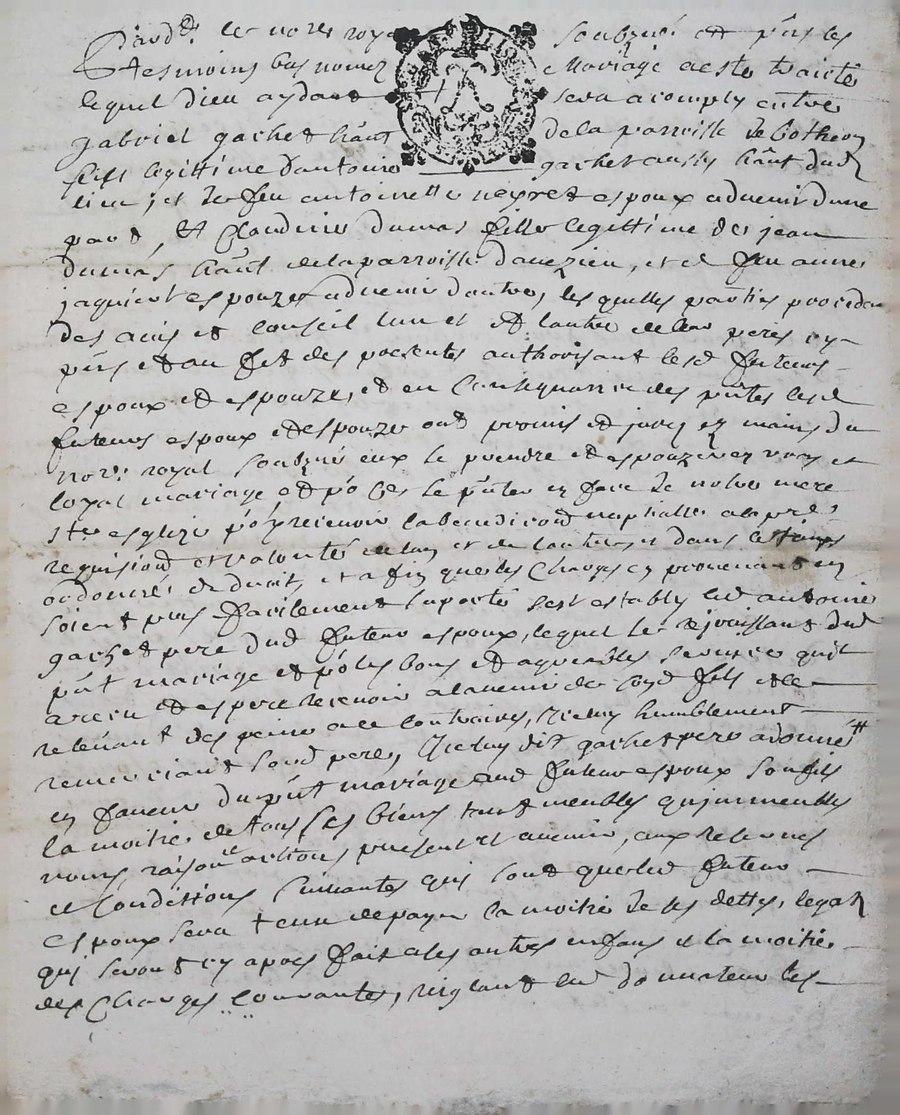 Pard.t le nore royal soubzné et pñs les
tesmoins bas nomez Mariage a este traicte
lequel dieu aydant sera acomply entre
gabriel gachet hañt de la parroisse de
filz legittime dantoine gachet aussy hãnt dud
lieu, et de feu antoinette neyret espoux advenir dune
part, et Claudine dumas fille legittime de jean
dumas hañt de la parroisse davezieu, et de feu anne
jaquier espouze advenir dautre, les quelles parties procedan
des avis et conseil lun et et lautre de leur peres cy
pñs et au fet des presentes authorisant lesd futeurs
espoux et espouze, et en Consequance des pñtes lesd
futeurs espoux et espouze ont promis et juré ez mains du
nore. royal soubzné eux se prendre et espouzer en vray et
loyal mariage et po ce se pñter en face de notre mere
Ste esglize po y recevoir la benediciond nuptialle a la pre.
requisiond et volonté de lun et de lautre, et dans le temps
ordonné de droit, et afin que les Charges en provenant en
soient plus facilement suporté sest estably led antoine
gachet pere dud futeur espoux, lequel se rejouissant du
pñt mariage et po les bons et agreables services quil
a receu et espere recevoir a ladvenir de sond filz et le
relevant des peine a ce contraires, icelluy humblement
remerciant sond pere, icelluy dit gachet pere a donné
en faveur du pñt mariage aud futeur espoux son filz
la moitie de tous ses biens tant meubles qujmmeubles
noms raisons actions present et avenir, aux reserves
et Conditions suivantes qui sont que led futeur
espoux sera tenu de payer la moitié de ses dettes, legatz
qui seront cy apres fait a ses autres enfans et la moitié
des Charges courantes, reiglant led donnateur les